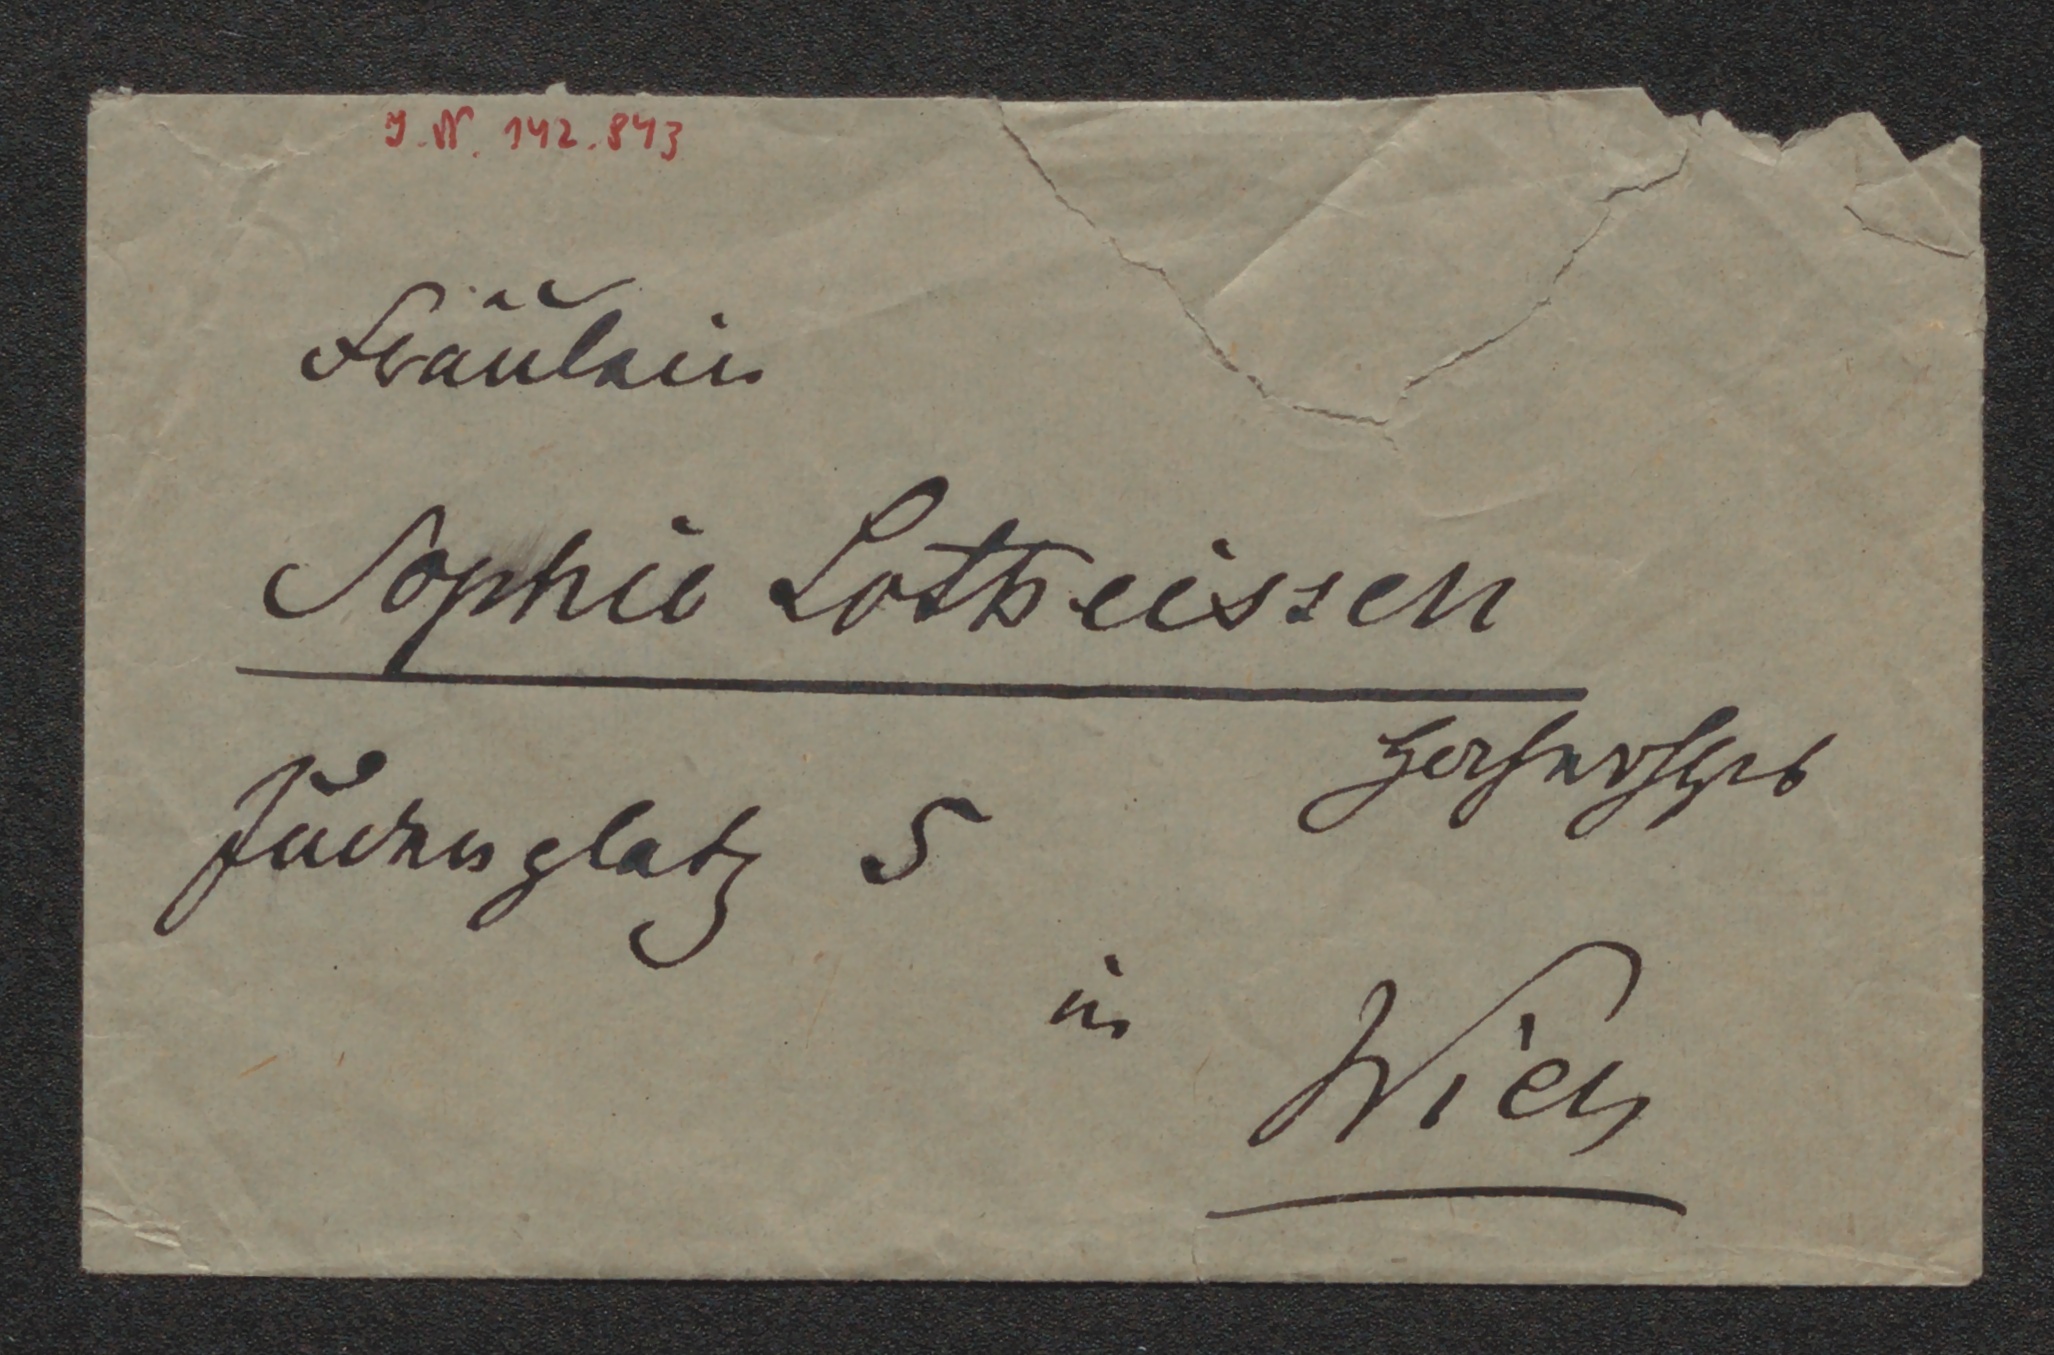 J.N. 142.843
Fräulein
Sophie Lotheissen
Judenplatz 5
in
Wien